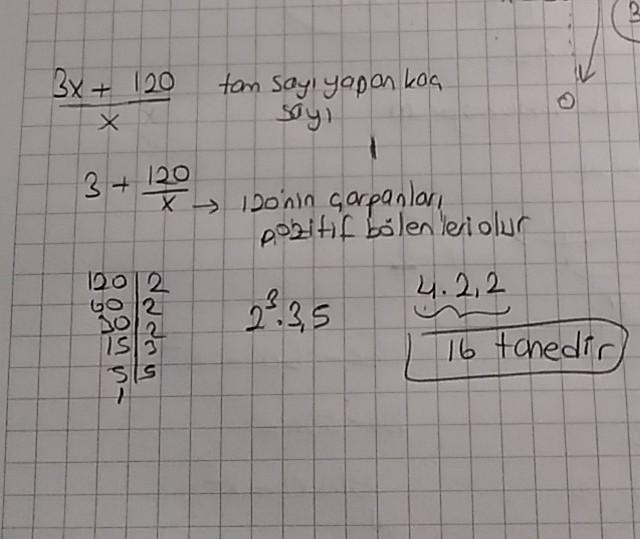 3x + 120 / x tam sayı yapan kaç
sayı
3 + 120 / x → 120'nin çarpanları
pozitif bölenleri olur
120 | 2
60 | 2
30 | 2
15 | 3
5 | 5
1
2³.3.5
4.2.2
16 tanedir
0